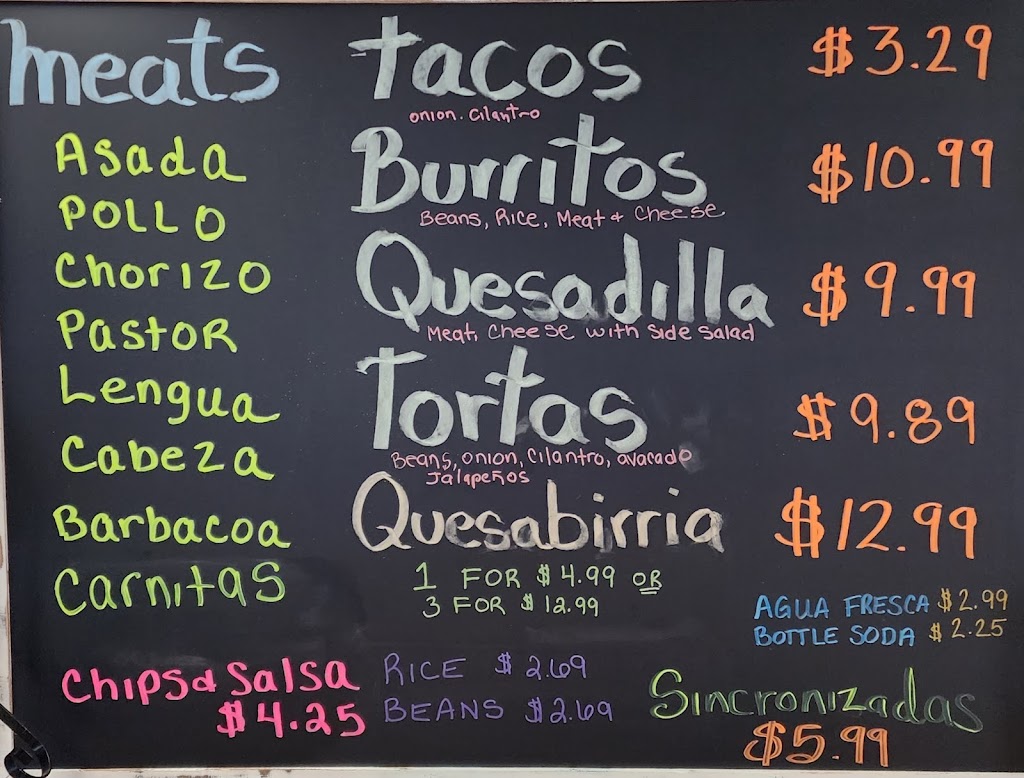 meats
Asada
POLLO
Chorizo
Pastor
Lengua
Cabeza
Barbacoa
Carnitas
Tacos $3.29
onion. cilantro
Burritos $10.99
Beans, Rice, Meat & Cheese
Quesadilla $9.99
Meat, Cheese with side salad
Tortas $9.89
Beans, onion, cilantro, avacado
Jalapeños
Quesabirria $12.99
1 FOR $4.99 OR
3 FOR $12.99
AGUA FRESCA $2.99
BOTTLE SODA $2.25
Chips & Salsa
$4.25
RICE $2.69
BEANS $2.69
Sincronizadas
$5.99